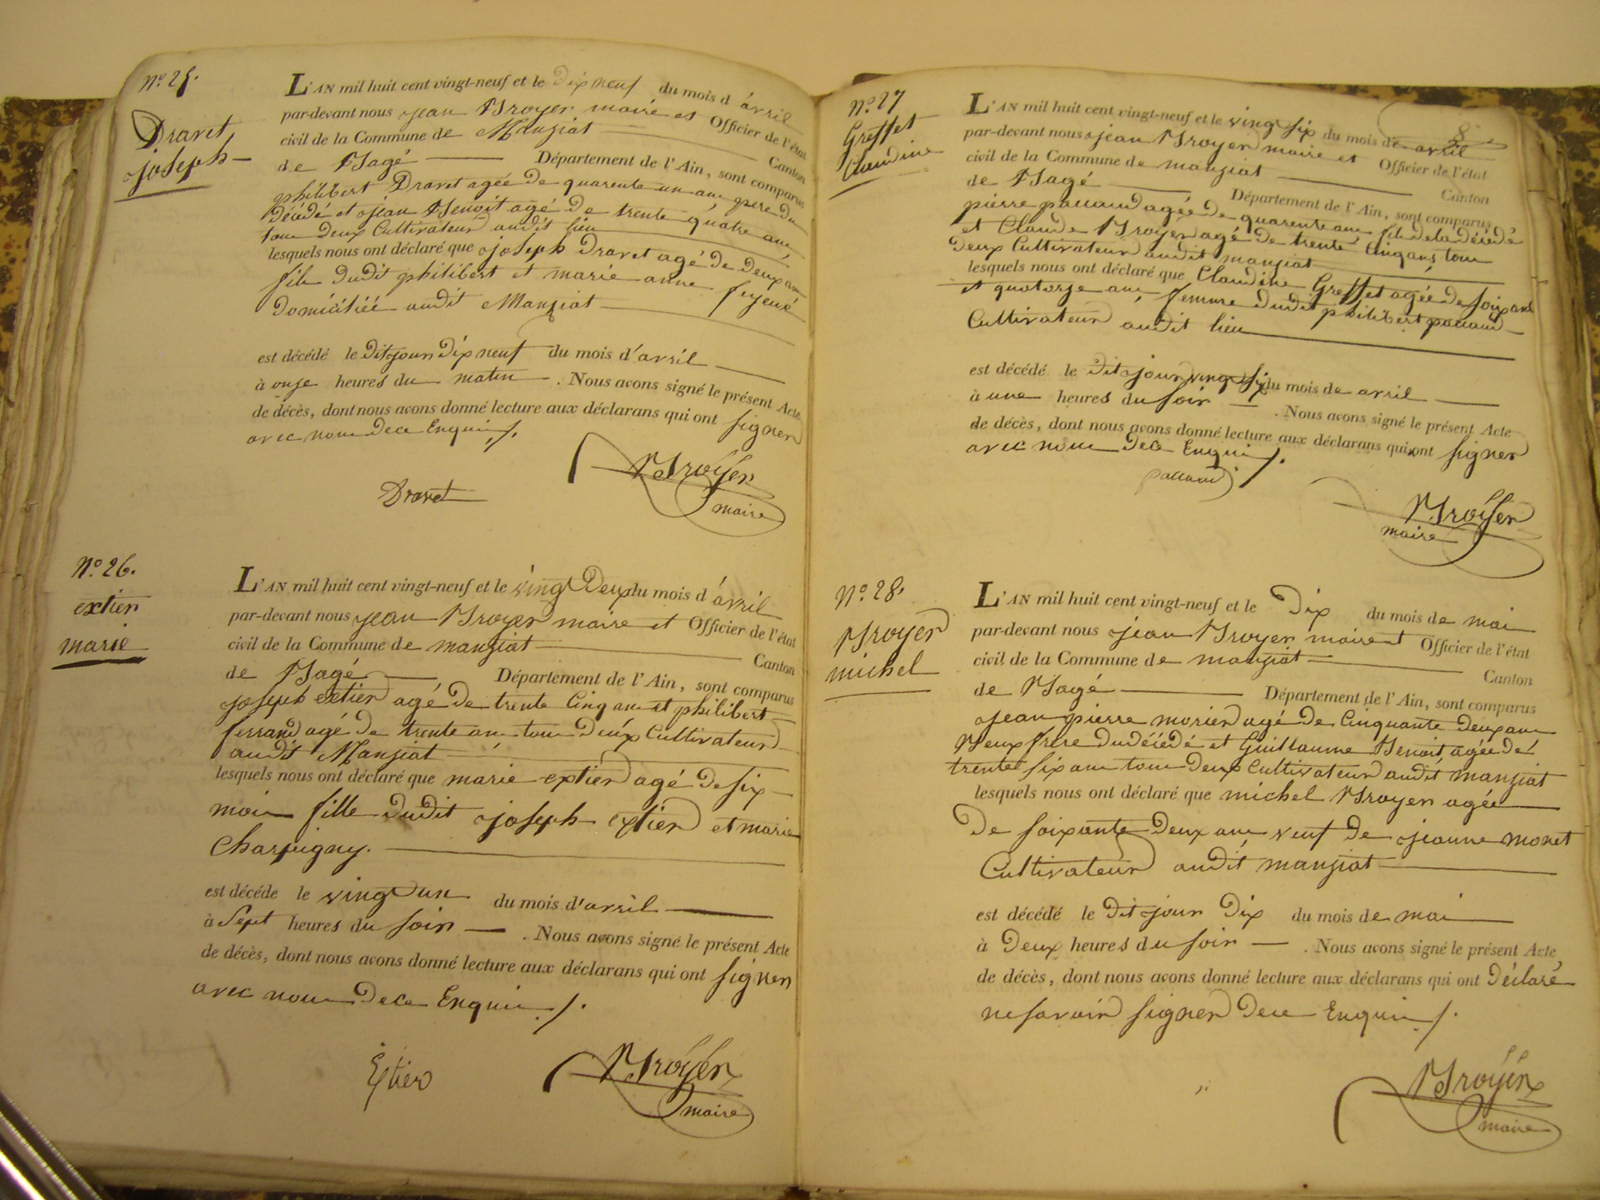 N.° 25.
Dravet
joseph
L'AN mil huit cent vingt-neuf et le Dix neuf du mois d'avril
par-devant nous jean Broyer maire et Officier de l'état
civil de la Commune de Manziat Canton
de Bagé Département de l'Ain, sont comparus
philibert Dravet agée de quarente un ans pere du
Décédé et jean Benoit agé de trente quatre ans
tous deux Cultivateur audit lieu
lesquels nous ont déclaré que joseph Dravet agé de deux ans
fils dudit philibert et marie anne
Domiciliée audit Manziat
est décédé le Dit jour Dix neuf du mois d'avril
à onze heures du matin. Nous avons signé le présent Acte
de décès, dont nous avons donné lecture aux déclarans qui ont signer
avec nous Dece Enquis
Dravet
Broyer
maire
N.° 26.
extier
marie
L'AN mil huit cent vingt-neuf et le vingt Deux du mois d'avril
par-devant nous jean Broyer maire et Officier de l'état
civil de la Commune de manziat Canton
de Bagé Département de l'Ain, sont comparus
joseph extier agé de trente Cinq ans et philibert
ferrand agé de trente ans tous deux Cultivateur
audit Manziat
lesquels nous ont déclaré que marie extier agé de six
mois fille dudit joseph extier et marie
Charpigny.
est décédé le vingt un du mois d'avril
à sept heures du soir. Nous avons signé le présent Acte
de décès, dont nous avons donné lecture aux déclarans qui ont signer
avec nous Dece Enquis
Extier
Broyer
maire
8
N.° 27
Greffet
Claudine
L'AN mil huit cent vingt-neuf et le vingt six du mois de avril
par-devant nous jean Broyer maire et Officier de l'état
civil de la Commune de manziat Canton
de Bagé Département de l'Ain, sont comparus
pierre pacaud agée de quarente ans fils de la décédé
et Claude Broyer agé de trente Cinq ans tous
deux Cultivateur audit manziat
lesquels nous ont déclaré que Claudine Greffet agée de soixante
et quatorze ans, femme dudit philibert pacaud
Cultivateur audit lieu
est décédé le Dit jour vingt six du mois de avril
à une heures du soir. Nous avons signé le présent Acte
de décès, dont nous avons donné lecture aux déclarans qui ont signer
avec nous Dece Enquis
pacaud
Broyer
maire
N.° 28.
Broyer
michel
L'AN mil huit cent vingt-neuf et le Dix du mois de mai
par-devant nous jean Broyer maire et Officier de l'état
civil de la Commune de manziat Canton
de Bagé Département de l'Ain, sont comparus
jean pierre morier agé de Cinquante deux ans
Beaux frere du décédé et Guillaume Benoit agée de
trente six ans tous deux Cultivateur audit manziat
lesquels nous ont déclaré que michel Broyer agée
de soixante deux ans veuf de jeanne monet
Cultivateur audit manziat
est décédé le Dit jour Dix du mois de mai
à Deux heures du soir. Nous avons signé le présent Acte
de décès, dont nous avons donné lecture aux déclarans qui ont Déclaré
ne savoir signer Dece Enquis
Broyer
maire